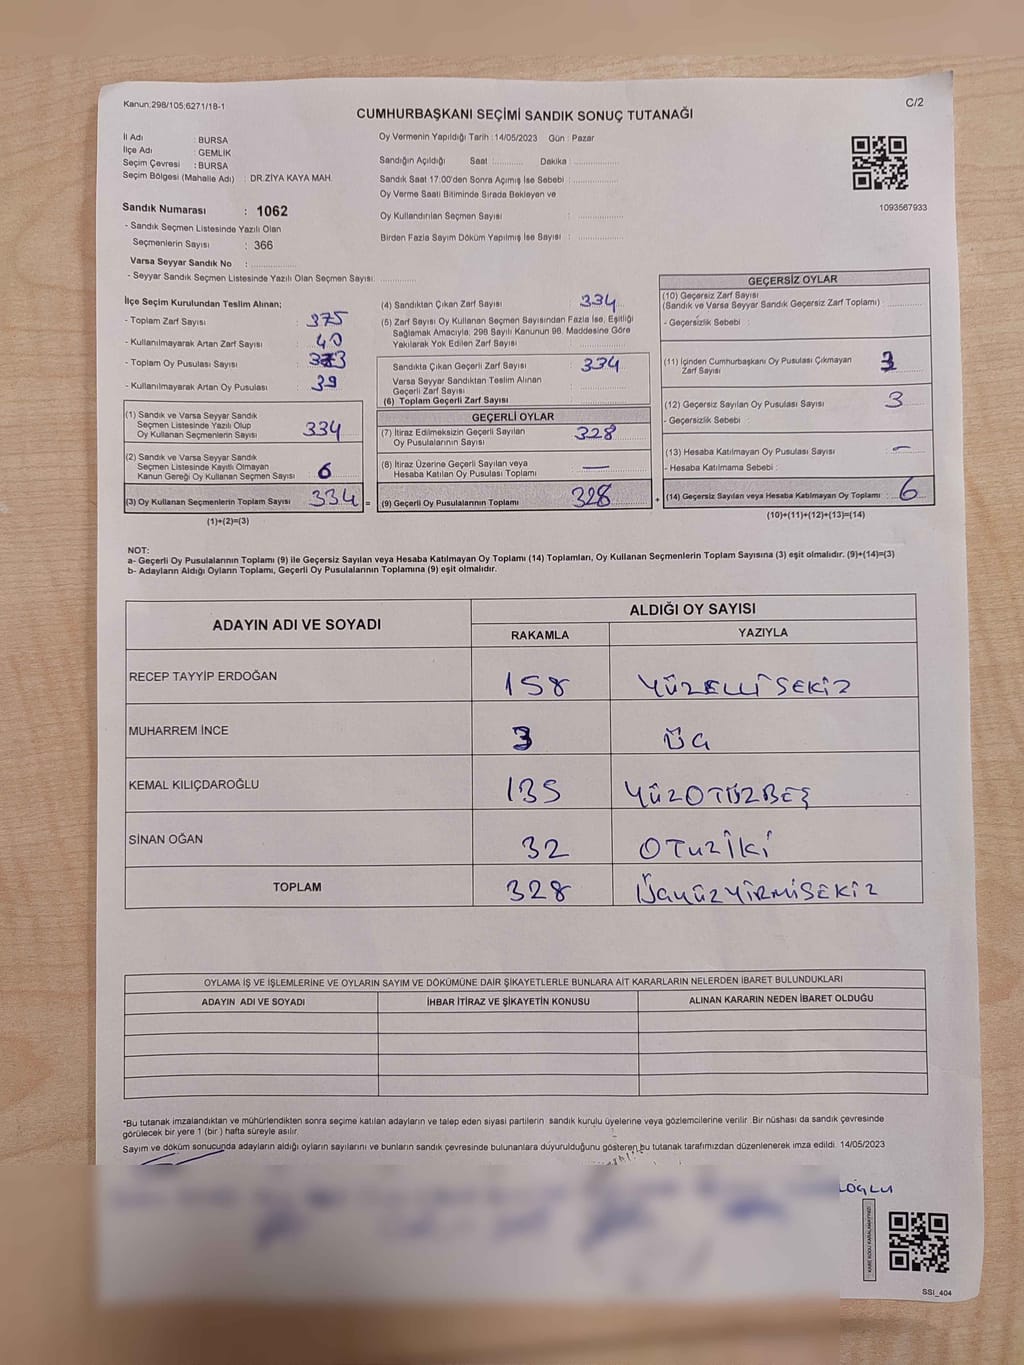 Kanun:298/105;6271/18-1
C/2
CUMHURBAŞKANI SEÇİMİ SANDIK SONUÇ TUTANAĞI
İl Adı : BURSA
İlçe Adı : GEMLİK
Seçim Çevresi : BURSA
Seçim Bölgesi (Mahalle Adı) : DR.ZİYA KAYA MAH.
Sandık Numarası : 1062
- Sandık Seçmen Listesinde Yazılı Olan
Seçmenlerin Sayısı : 366
Varsa Seyyar Sandık No :
- Seyyar Sandık Seçmen Listesinde Yazılı Olan Seçmen Sayısı:
Oy Vermenin Yapıldığı Tarih : 14/05/2023 Gün : Pazar
Sandığın Açıldığı Saat : Dakika :
Sandık Saat 17.00'den Sonra Açımış İse Sebebi :
Oy Verme Saati Bitiminde Sırada Bekleyen ve
Oy Kullandırılan Seçmen Sayısı :
Birden Fazla Sayım Döküm Yapılmış İse Sayısı :
1093567933
İlçe Seçim Kurulundan Teslim Alınan;
- Toplam Zarf Sayısı : 375
- Kullanılmayarak Artan Zarf Sayısı : 40
- Toplam Oy Pusulası Sayısı : 373
- Kullanılmayarak Artan Oy Pusulası : 39
(1) Sandık ve Varsa Seyyar Sandık
Seçmen Listesinde Yazılı Olup
Oy Kullanan Seçmenlerin Sayısı 334
(2) Sandık ve Varsa Seyyar Sandık
Seçmen Listesinde Kayıtlı Olmayan
Kanun Gereği Oy Kullanan Seçmen Sayısı 6
(3) Oy Kullanan Seçmenlerin Toplam Sayısı 334 =
(1)+(2)=(3)
(4) Sandıktan Çıkan Zarf Sayısı : 334
(5) Zarf Sayısı Oy Kullanan Seçmen Sayısından Fazla İse, Eşitliği
Sağlamak Amacıyla, 298 Sayılı Kanunun 98. Maddesine Göre
Yakılarak Yok Edilen Zarf Sayısı :
Sandıkta Çıkan Geçerli Zarf Sayısı : 334
Varsa Seyyar Sandıktan Teslim Alınan
Geçerli Zarf Sayısı :
(6) Toplam Geçerli Zarf Sayısı :
GEÇERLİ OYLAR
(7) İtiraz Edilmeksizin Geçerli Sayılan
Oy Pusulalarının Sayısı : 328
(8) İtiraz Üzerine Geçerli Sayılan veya
Hesaba Katılan Oy Pusulası Toplamı : —
(9) Geçerli Oy Pusulalarının Toplamı : 328 +
GEÇERSİZ OYLAR
(10) Geçersiz Zarf Sayısı
(Sandık ve Varsa Seyyar Sandık Geçersiz Zarf Toplamı) :
- Geçersizlik Sebebi :
(11) İçinden Cumhurbaşkanı Oy Pusulası Çıkmayan
Zarf Sayısı : 3
(12) Geçersiz Sayılan Oy Pusulası Sayısı : 3
- Geçersizlik Sebebi :
(13) Hesaba Katılmayan Oy Pusulası Sayısı : —
- Hesaba Katılmama Sebebi :
(14) Geçersiz Sayılan veya Hesaba Katılmayan Oy Toplamı : 6
(10)+(11)+(12)+(13)=(14)
NOT:
a- Geçerli Oy Pusulalarının Toplamı (9) ile Geçersiz Sayılan veya Hesaba Katılmayan Oy Toplamı (14) Toplamları, Oy Kullanan Seçmenlerin Toplam Sayısına (3) eşit olmalıdır. (9)+(14)=(3)
b- Adayların Aldığı Oyların Toplamı, Geçerli Oy Pusulalarının Toplamına (9) eşit olmalıdır.
ADAYIN ADI VE SOYADI ALDIĞI OY SAYISI
RAKAMLA YAZIYLA
RECEP TAYYİP ERDOĞAN 158 YÜZELLİSEKİZ
MUHARREM İNCE 3 ÜÇ
KEMAL KILIÇDAROĞLU 135 YÜZOTUZBEŞ
SİNAN OĞAN 32 OTUZİKİ
TOPLAM 328 ÜÇYÜZYİRMİSEKİZ
OYLAMA İŞ VE İŞLEMLERİNE VE OYLARIN SAYIM VE DÖKÜMÜNE DAİR ŞİKAYETLERLE BUNLARA AİT KARARLARIN NELERDEN İBARET BULUNDUKLARI
ADAYIN ADI VE SOYADI İHBAR İTİRAZ VE ŞİKAYETİN KONUSU ALINAN KARARIN NEDEN İBARET OLDUĞU
*Bu tutanak imzalandıktan ve mühürlendikten sonra seçime katılan adayların ve talep eden siyasi partilerin sandık kurulu üyelerine veya gözlemcilerine verilir. Bir nüshası da sandık çevresinde
görülecek bir yere 1 (bir) hafta süreyle asılır.
Sayım ve döküm sonucunda adayların aldığı oyların sayılarını ve bunların sandık çevresinde bulunanlara duyurulduğunu gösteren bu tutanak tarafımızdan düzenlenerek imza edildi. 14/05/2023
LOĞLU
KARE KODU KARALAMAYINIZ!
SSI_404